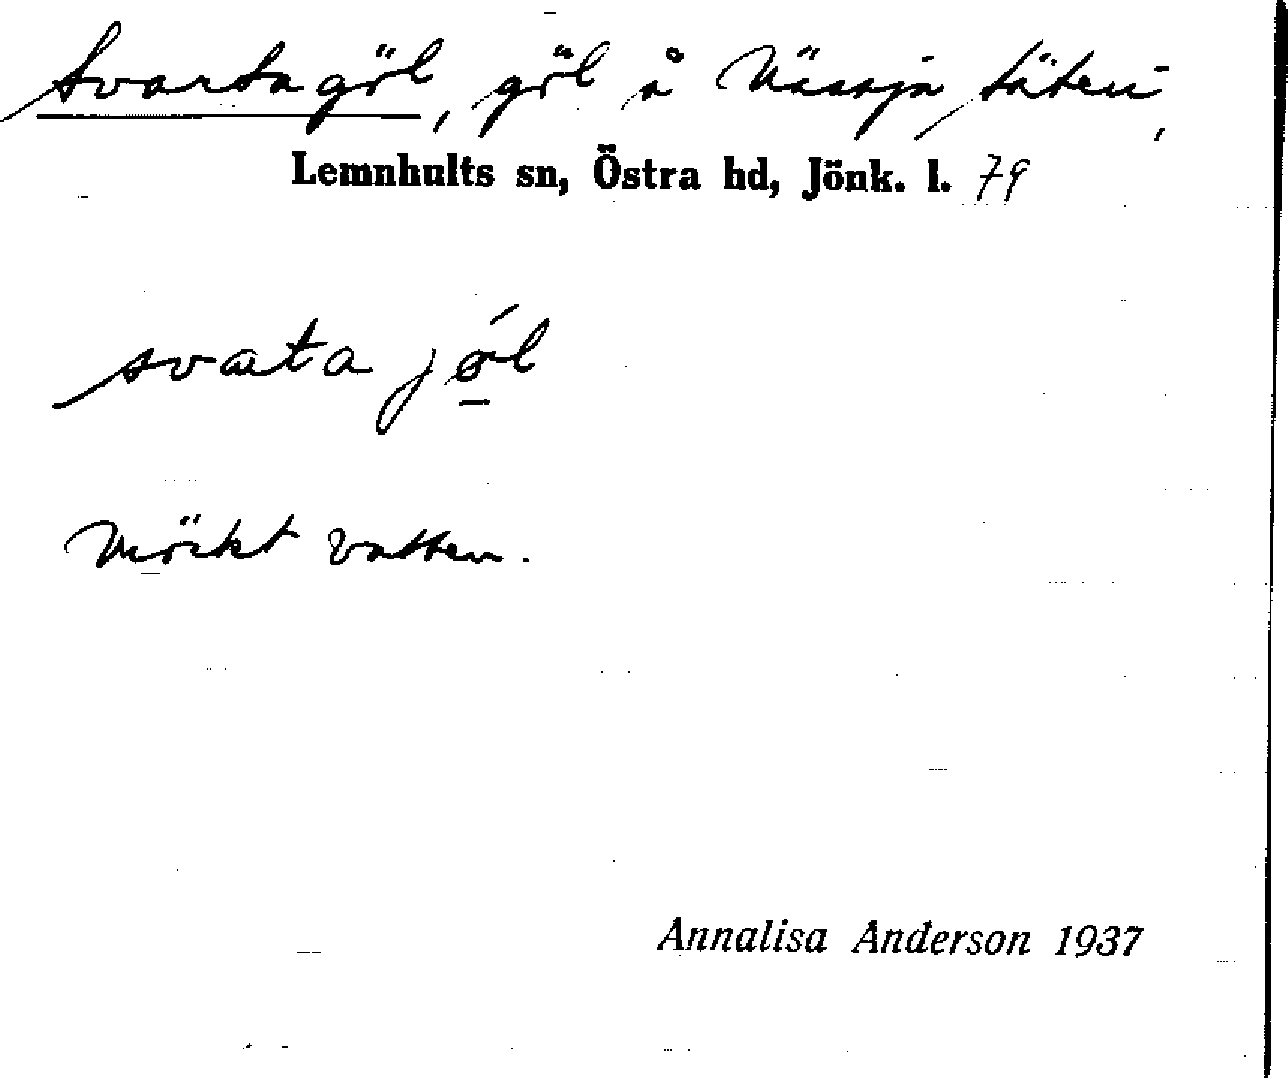 Svartagöl, göl å Nässja säteri,
Lemnhults sn, Östra hd, Jönk. l. 79
svarta jö́l
Mörkt vatten.
Annalisa Anderson 1937